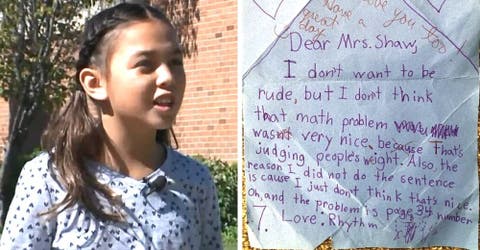 love you too
Have a
great
day
Dear Mrs. Shaw,
I don't want to be
rude, but I don't think
that math problem
wasn't very nice because That's
judging people's weight. Also, the
reason I did not do the sentence
is cause I just don't think that's nice.
Oh, and the problem is page 34 number
7. Love: Rhythm